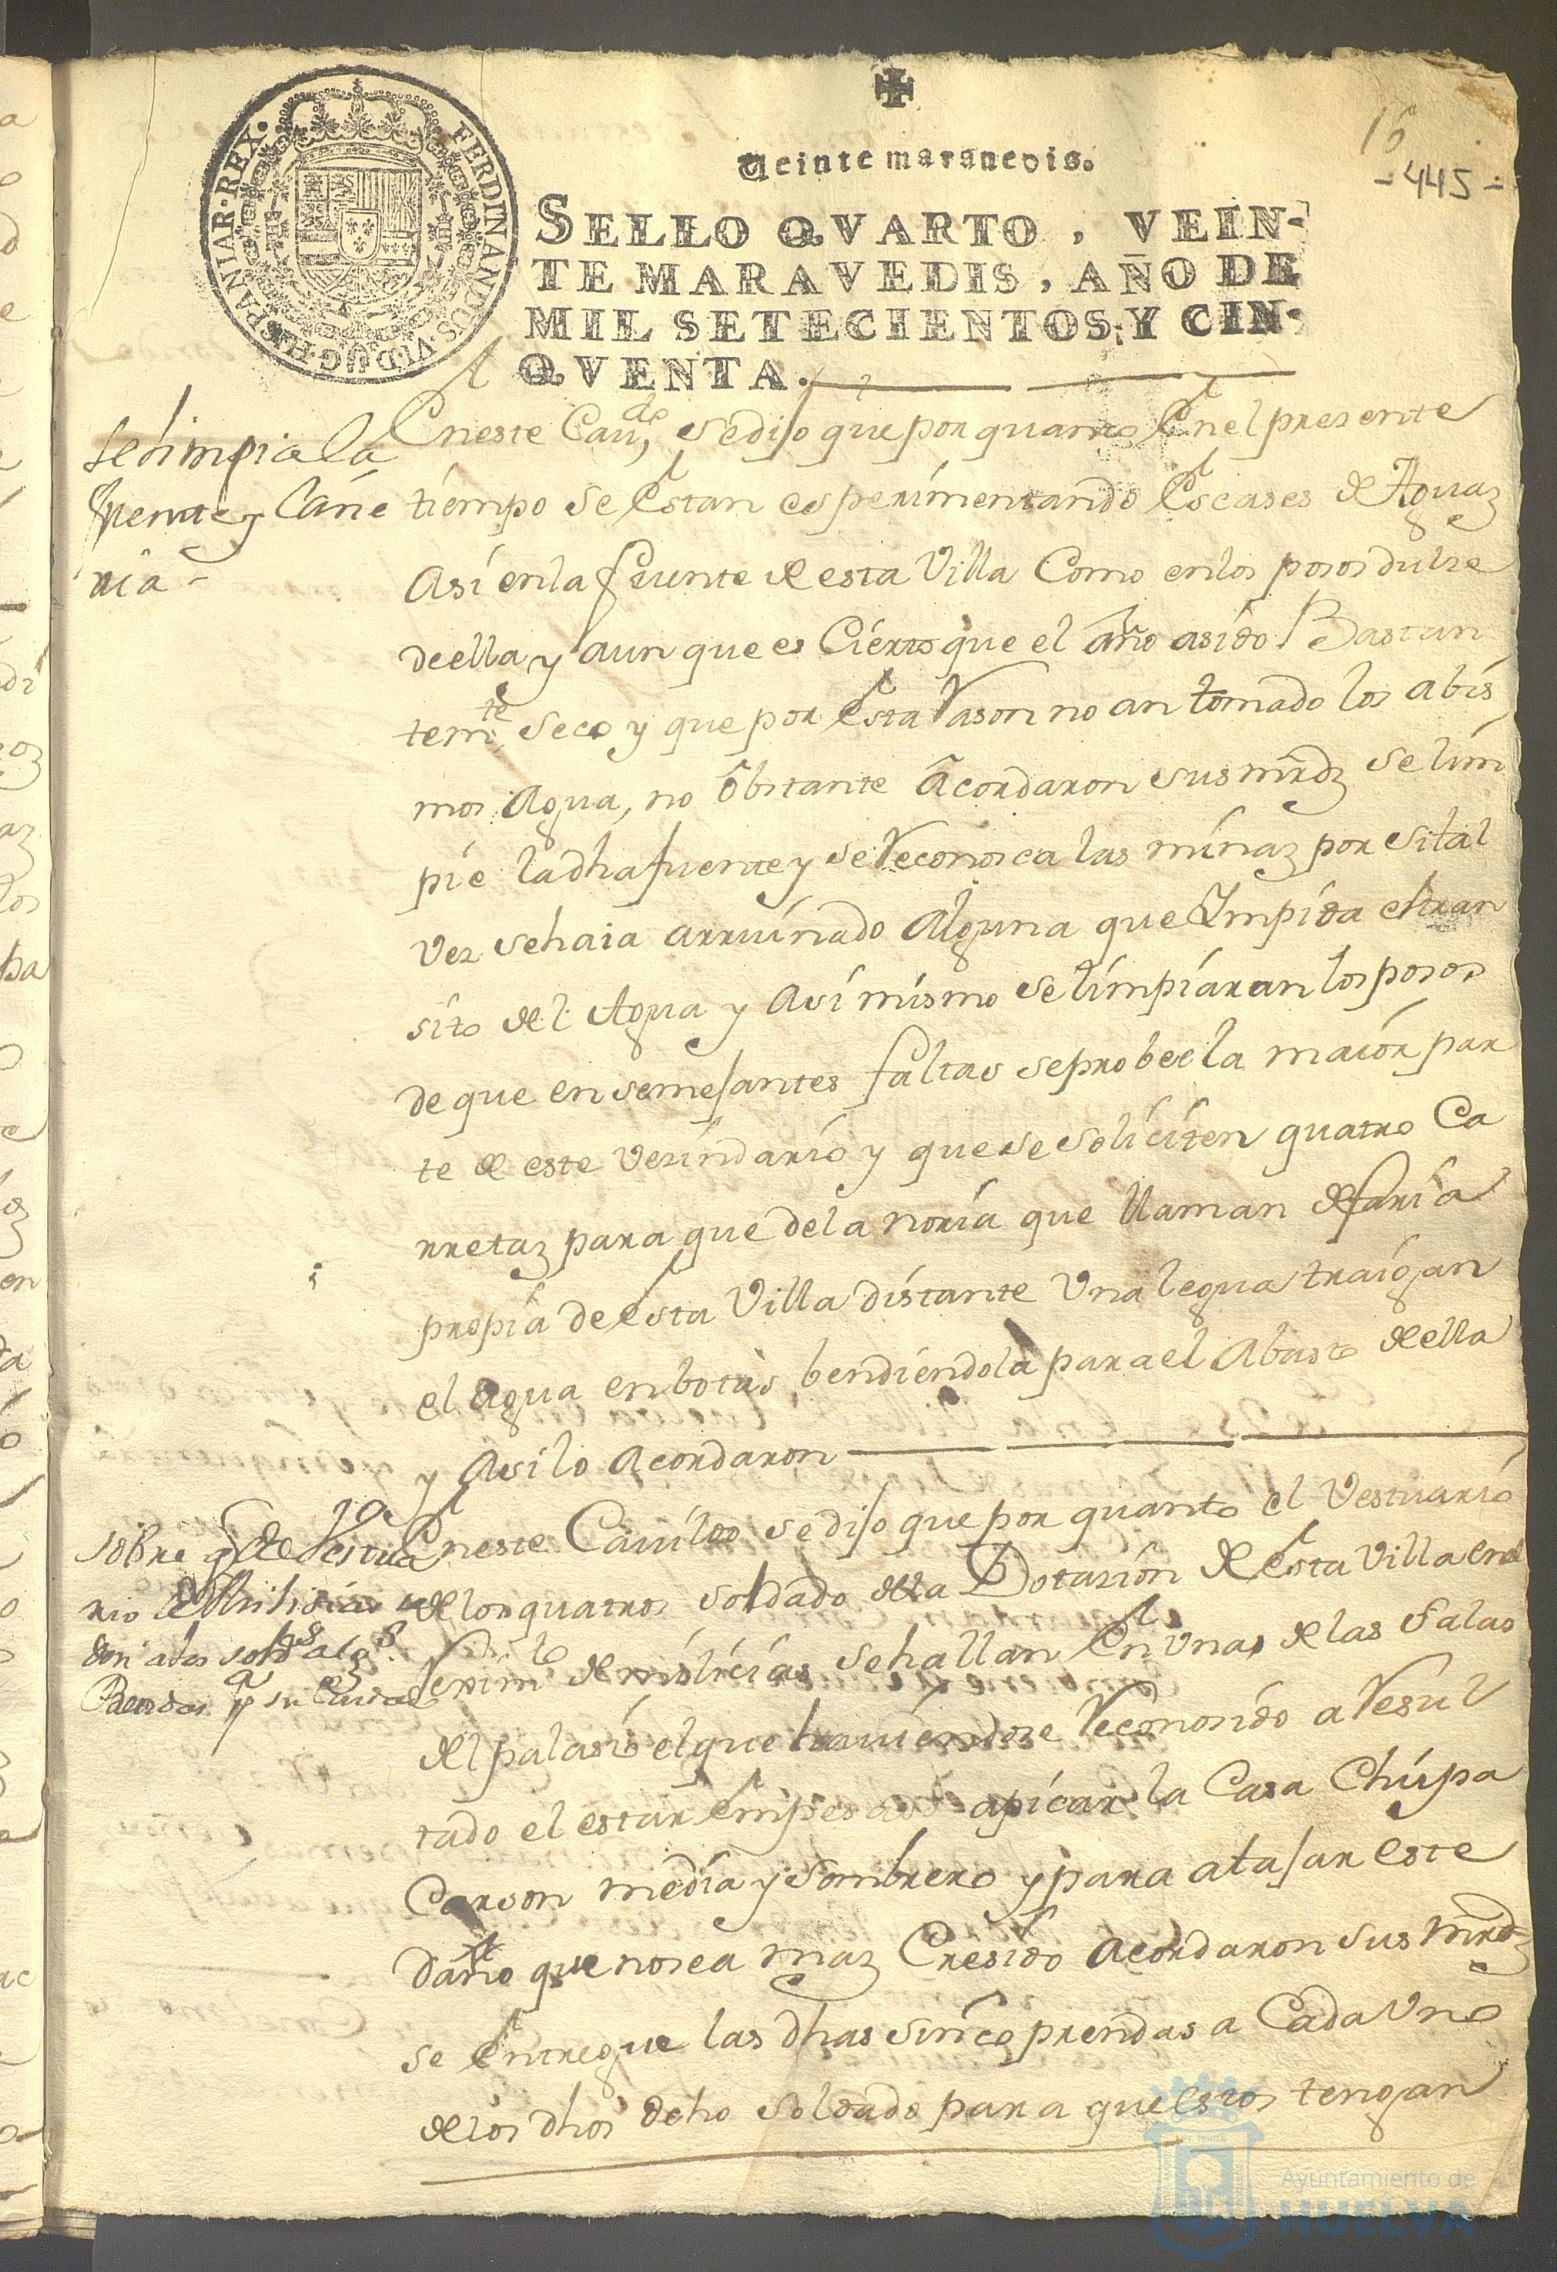 16
-445-
Veinte maravedis.
SELLO QVARTO, VEIN-
TE MARAVEDIS, AÑO DE
MIL SETECIENTOS, Y CIN-
QVENTA.
FERDINANDUS·VI·D·G·HISPANIAR·REX·
se limpie la
fuente y Cañe
ria -
En este Caudo, se dijo que por quanto En el presente
tiempo se Estan esperimentando Escases de Aguaz
Asi en la fuente de esta Villa Como en los posos dulse
de ella y aun que es Cierto que el año asido Bastan
temte seco y que por Esta Rason no an tomado los abis
mos Agua, no obstante Acordaron sus mrdz se lim
pie la dha fuente y se Reconosca las minaz por si tal
vez se haia arruinado Alguna que Impida el tran
sito del Agua y Asi mismo se limpiaran los posos
de que en semejantes faltas se probee la maior par
te de este vezindario y que se soliciten quatro Ca
rretaz para que de la noria que llaman de faria
propia de Esta Villa distante Una legua traigan
el agua en botas bendiendola para el Abasto de ella
y Asi lo Acordaron
sobre q el vestua
rio de Milisias se
den a los soldds
En este Cauildo se dijo que por quanto el Vestuario
de los quatros soldado de la Dotazion de Esta Villa en el
de milicias se hallan En Una de las Salas
del palasio el que hauiendose Reconosido a Resul
tado el estar Empesado apicar la Casa Chupa
Carson media y Sombrero y para atajar este
Daño que no sea maz Cresido acordaron sus mrdz
se Entregue las dhas sinco prendas a Cada Uno
de los dhos ocho Soldado para que Estos tengan
Ayuntamiento de
HUELVA